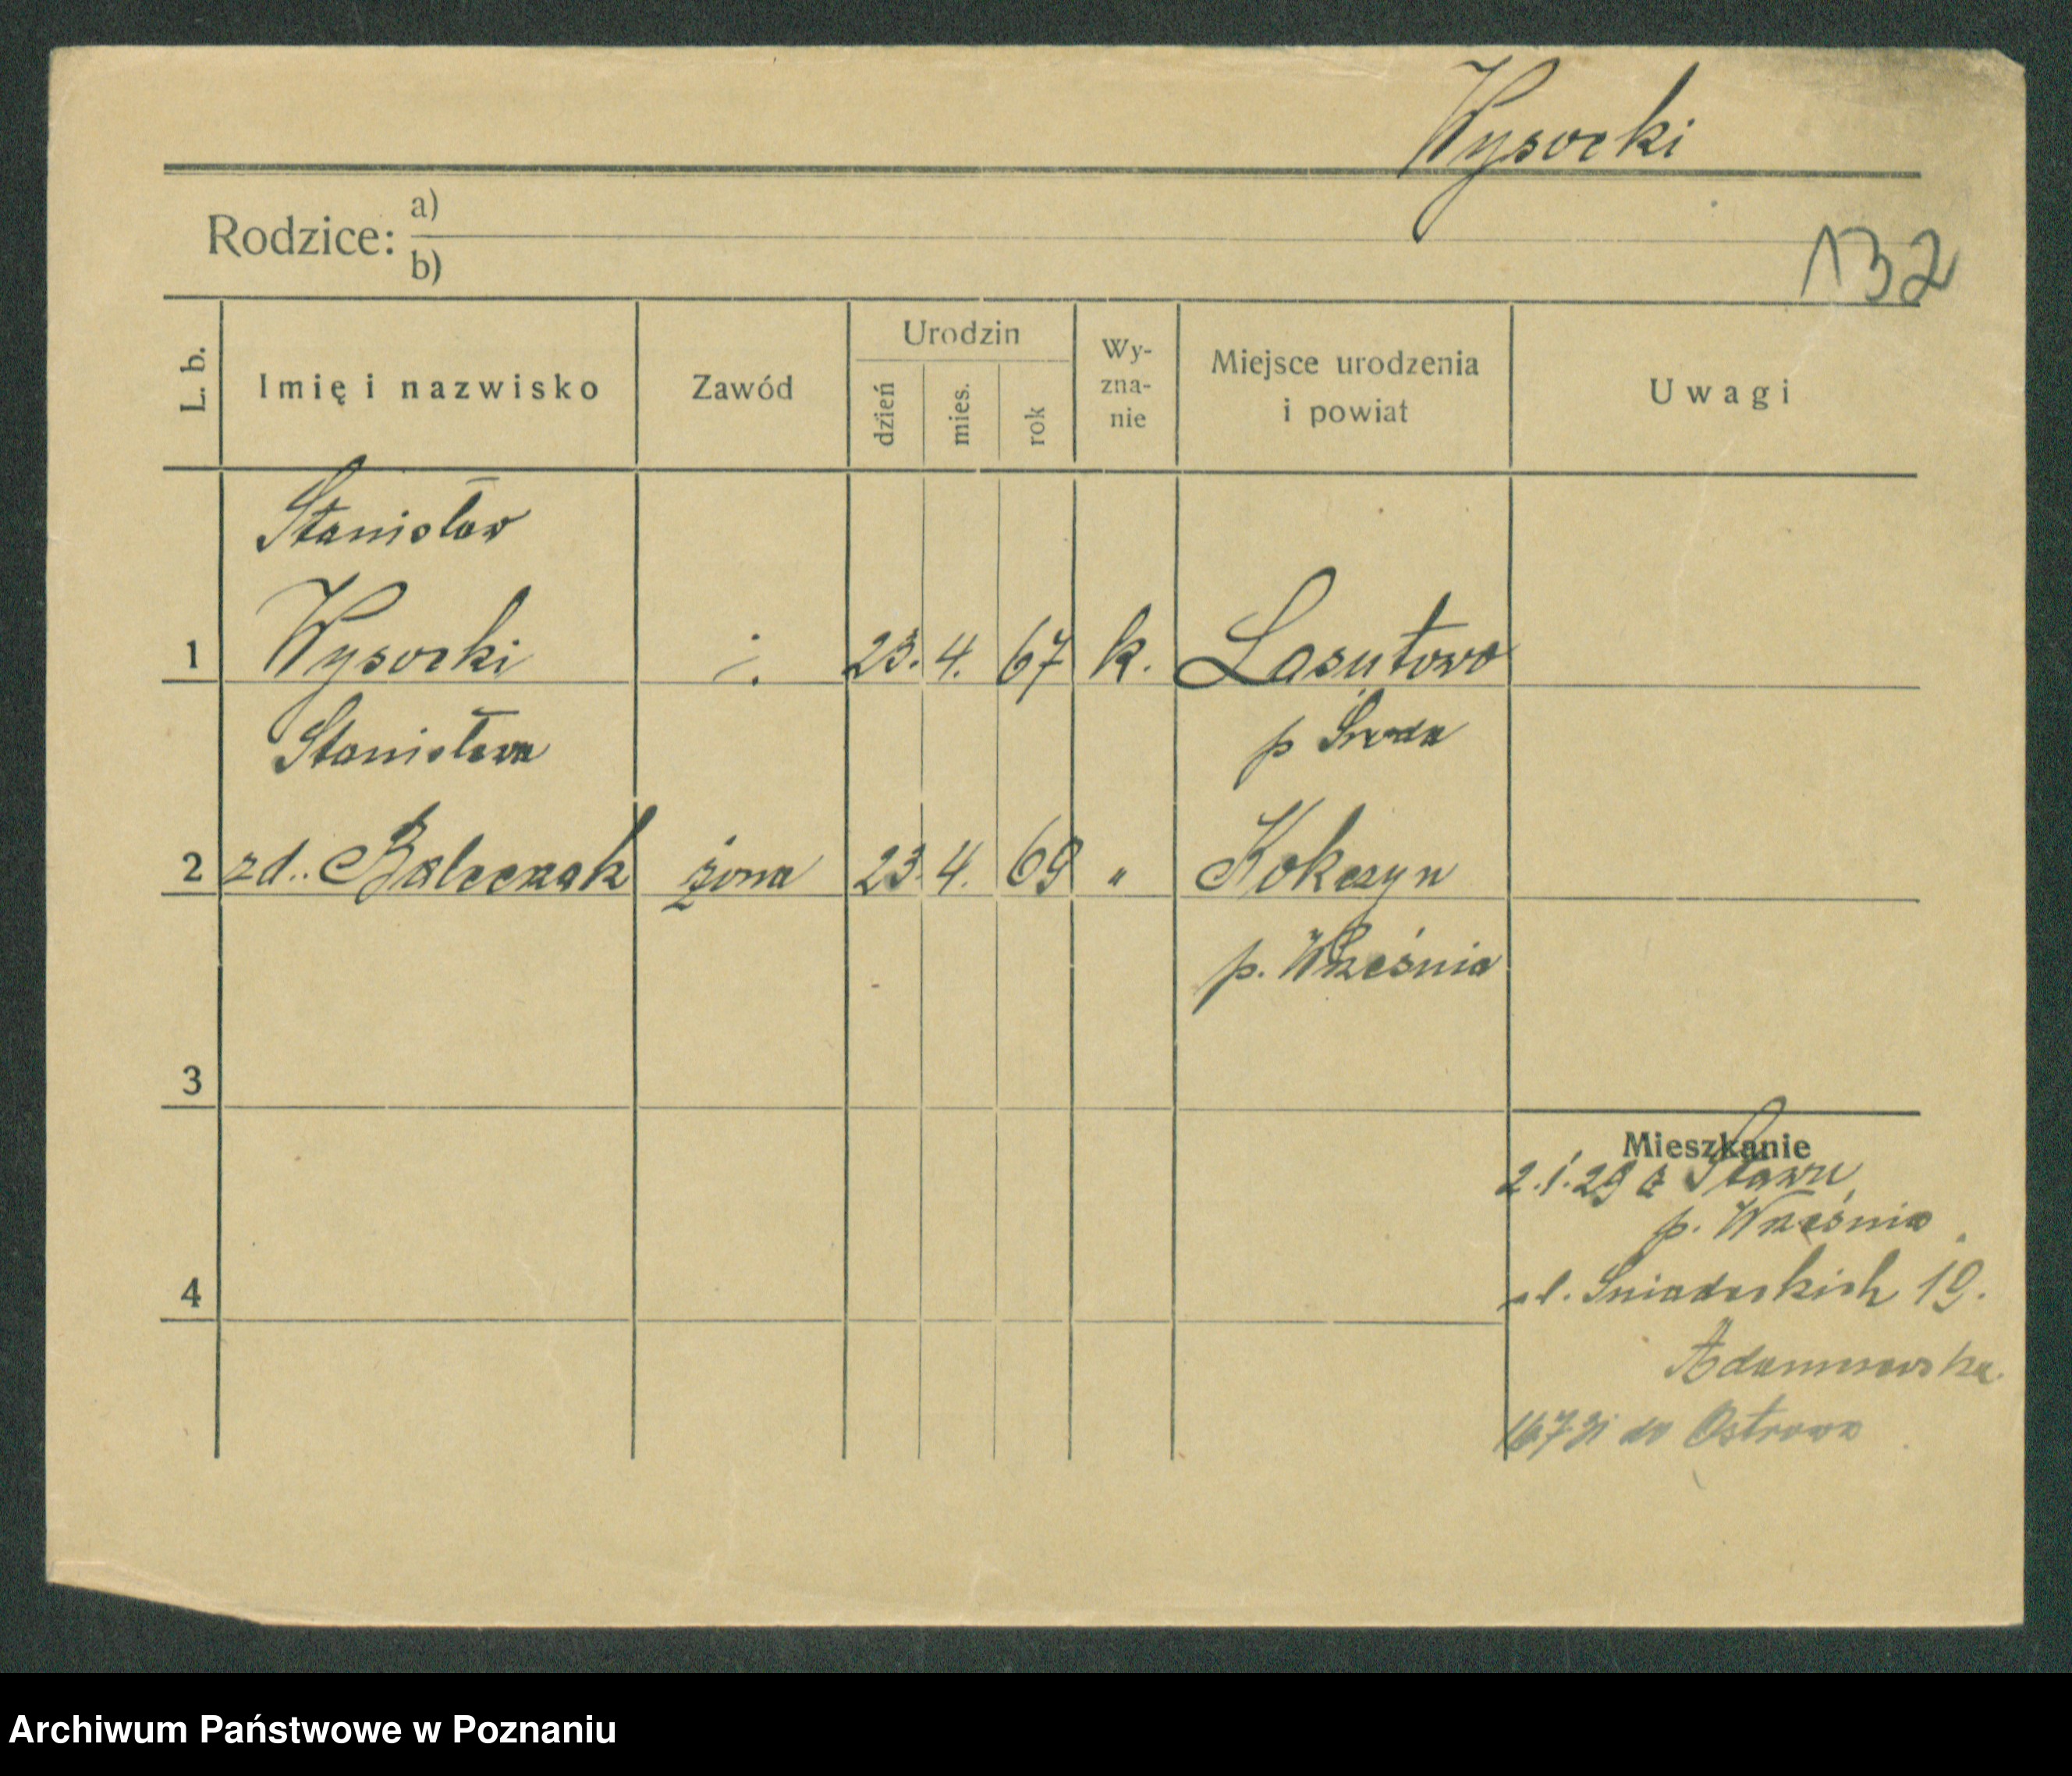 Wysocki
Rodzice: a)
b)
132
L. b.
Imię i nazwisko
Zawód
Urodzin
dzień
mies.
rok
Wy-
zna-
nie
Miejsce urodzenia
i powiat
Uwagi
Stanisław
1 Wysocki 23. 4. 67 k. Lasutowo
p Środa
Stanisława
2 zd.. Balcerzak żona 23. 4. 69 " Kokczyn
p. Września
3
4
Mieszkanie
2.1.29 z Stawu
p. Września
ul. Śniadeckich 19.
16.7.31 do Ostrowa
Archiwum Państwowe w Poznaniu